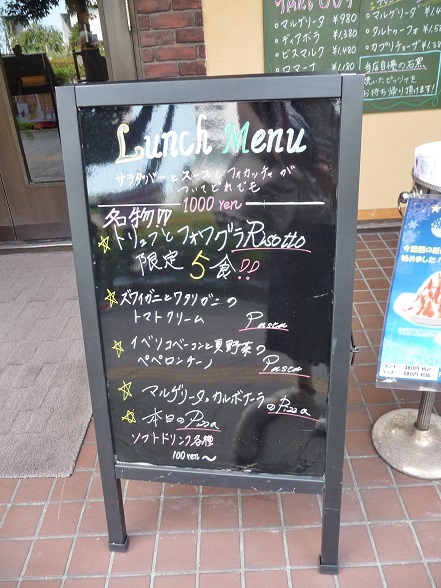 Lunch Menu
サラダバーとスープとフォカッチャが
ついてどれでも
1000 yen
名物!!!
☆トリュフとフォワグラRisotto
限定5食!!
☆ズワイガニとワタリガニの
トマトクリーム Pasta
☆イベリコベーコンと夏野菜の
ペペロンチーノ Pasta
☆マルゲリータ。カルボナーラのPizza
☆本日のPizza
ソフトドリンク各種
100 yen〜
・マルゲリータ ¥980
・ディアボラ 1,380
・ビスマルク ¥1,480
・ロマーナ
・マルゲリータ
・タルトゥーフォ
・カプリチョーザ
当店自慢の石窯
焼いたピッツァを
お持ち帰り頂けます!
始めました